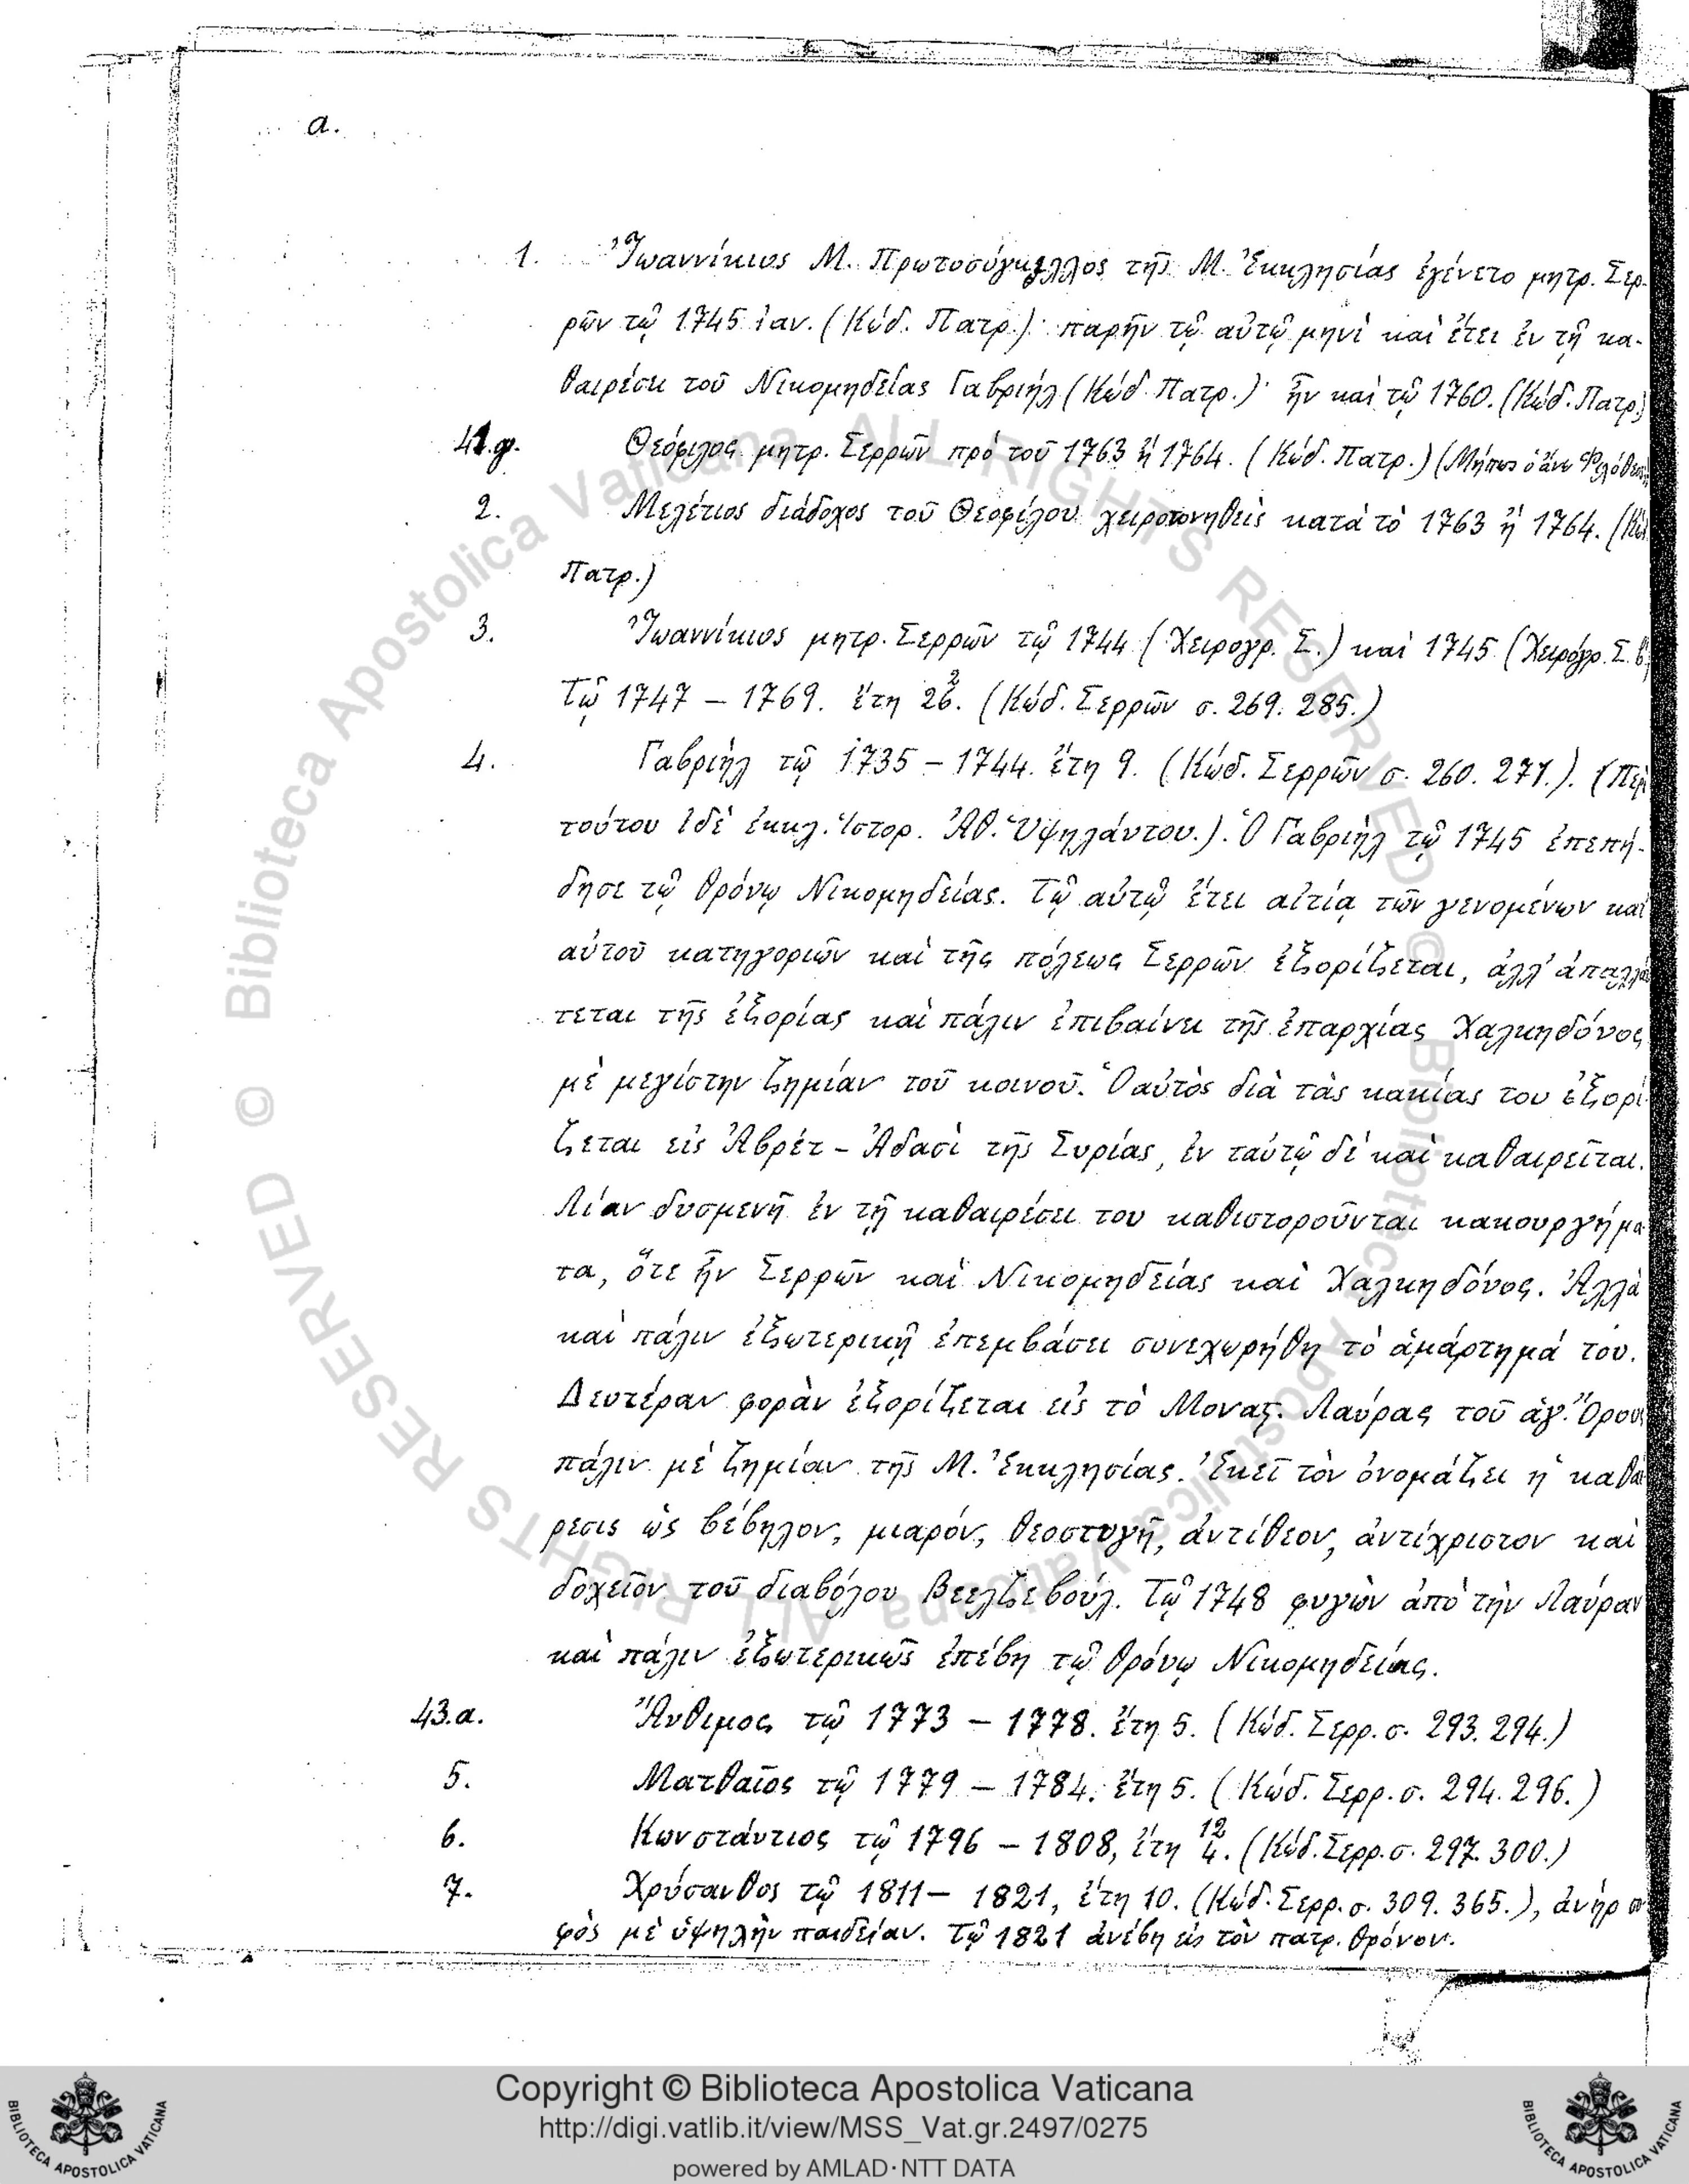 α.
1. Ἰωαννίκιος Μ. Πρωτοσύγκελλος τῆς Μ. Ἐκκλησίας ἐγένετο μητρ. Σερ-
ρῶν τῷ 1745 ἰαν. (Κώδ. Πατρ.)· παρῆν τῷ αὐτῷ μηνὶ καὶ ἔτει ἐν τῇ κα-
θαιρέσει τοῦ Νικομηδείας Γαβριήλ (Κώδ. Πατρ.)· ἦν καὶ τῷ 1760. (Κώδ. Πατρ.)
Θεόφιλος μητρ. Σερρῶν πρό τοῦ 1763 ἢ 1764. (Κώδ. Πατρ.) (Μήπως ὁ ἄνω Φιλόθεος
2. Μελέτιος διάδοχος τοῦ Θεοφίλου χειροτονηθεὶς κατὰ τὸ 1763 ἢ 1764. (Κώδ.
Πατρ.)
3. Ἰωαννίκιος μητρ. Σερρῶν τῷ 1744 (Χειρογρ. Σ.) καὶ 1745 (Χειρόγρ. Σ.
Τῷ 1747 – 1769. ἔτη 22. (Κώδ. Σερρῶν σ. 269. 285.)
4. Γαβριήλ τῷ 1735 – 1744. ἔτη 9. (Κώδ. Σερρῶν σ. 260. 271.). (Περὶ
τούτου ἰδὲ ἐκκλ. Ἱστορ. Ἀθ. Ὑψηλάντου.). Ὁ Γαβριὴλ τῷ 1745 ἐπεπή-
δησε τῷ θρόνῳ Νικομηδείας. Τῷ αὐτῷ ἔτει αἰτίᾳ τῶν γενομένων κατ
αὐτοῦ κατηγοριῶν καὶ τῆς πόλεως Σερρῶν ἐξορίζεται, ἀλλ' ἀπαλλά
τεται τῆς ἐξορίας καὶ πάλιν ἐπιβαίνει τῆς ἐπαρχίας Χαλκηδόνος
μὲ μεγίστην ζημίαν τοῦ κοινοῦ. Ὁ αὐτὸς διὰ τὰς κακίας του ἐξορί
ζεται εἰς Ἀβρέτ-Ἀδασὶ τῆς Συρίας, ἐν ταύτῷ δὲ καὶ καθαιρεῖται.
Λίαν δυσμενῆ ἐν τῇ καθαιρέσει του καθιστοροῦνται κακουργήμα
τα, ὅτε ἦν Σερρῶν καὶ Νικομηδείας καὶ Χαλκηδόνος. Ἀλλὰ
καὶ πάλιν ἐξωτερικῇ ἐπεμβάσει συνεχωρήθη τὸ ἁμάρτημά του.
Δευτέραν φορὰν ἐξορίζεται εἰς τὸ Μοναστ. Λαύρας τοῦ ἁγ. Ὄρους
πάλιν μὲ ζημίαν τῆς Μ. Ἐκκλησίας. Ἐκεῖ τὸν ὀνομάζει ἡ καθαί
ρεσις ὡς βέβηλον, μιαρόν, θεοστυγῆ, ἀντίθεον, ἀντίχριστον καὶ
δοχεῖον τοῦ διαβόλου Βεελζεβούλ. Τῷ 1748 φυγὼν ἀπὸ τὴν Λαύραν
καὶ πάλιν ἐξωτερικῶς ἐπέβη τῷ θρόνῳ Νικομηδείας.
43.α. Ἄνθιμος τῷ 1773 – 1778. ἔτη 5. (Κώδ. Σερρ. σ. 293. 294.)
5. Ματθαῖος τῷ 1779 – 1784. ἔτη 5. (Κώδ. Σερρ. σ. 294. 296.)
6. Κωνστάντιος τῷ 1796 – 1808, ἔτη 12. (Κώδ. Σερρ. σ. 297. 300.)
7. Χρύσανθος τῷ 1811 – 1821, ἔτη 10. (Κώδ. Σερρ. σ. 309. 365.), ἀνὴρ σο
φὸς μὲ ὑψηλὴν παιδείαν. Τῷ 1821 ἀνέβη εἰς τὸν πατρ. θρόνον.
© Biblioteca Apostolica Vaticana ALL RIGHTS RESERVED
© Biblioteca Apostolica Vaticana ALL RIGHTS RESERVED
Copyright © Biblioteca Apostolica Vaticana
http://digi.vatlib.it/view/MSS_Vat.gr.2497/0275
powered by AMLAD·NTT DATA
BIBLIOTECA APOSTOLICA VATICANA
BIBLIOTECA APOSTOLICA VATICANA